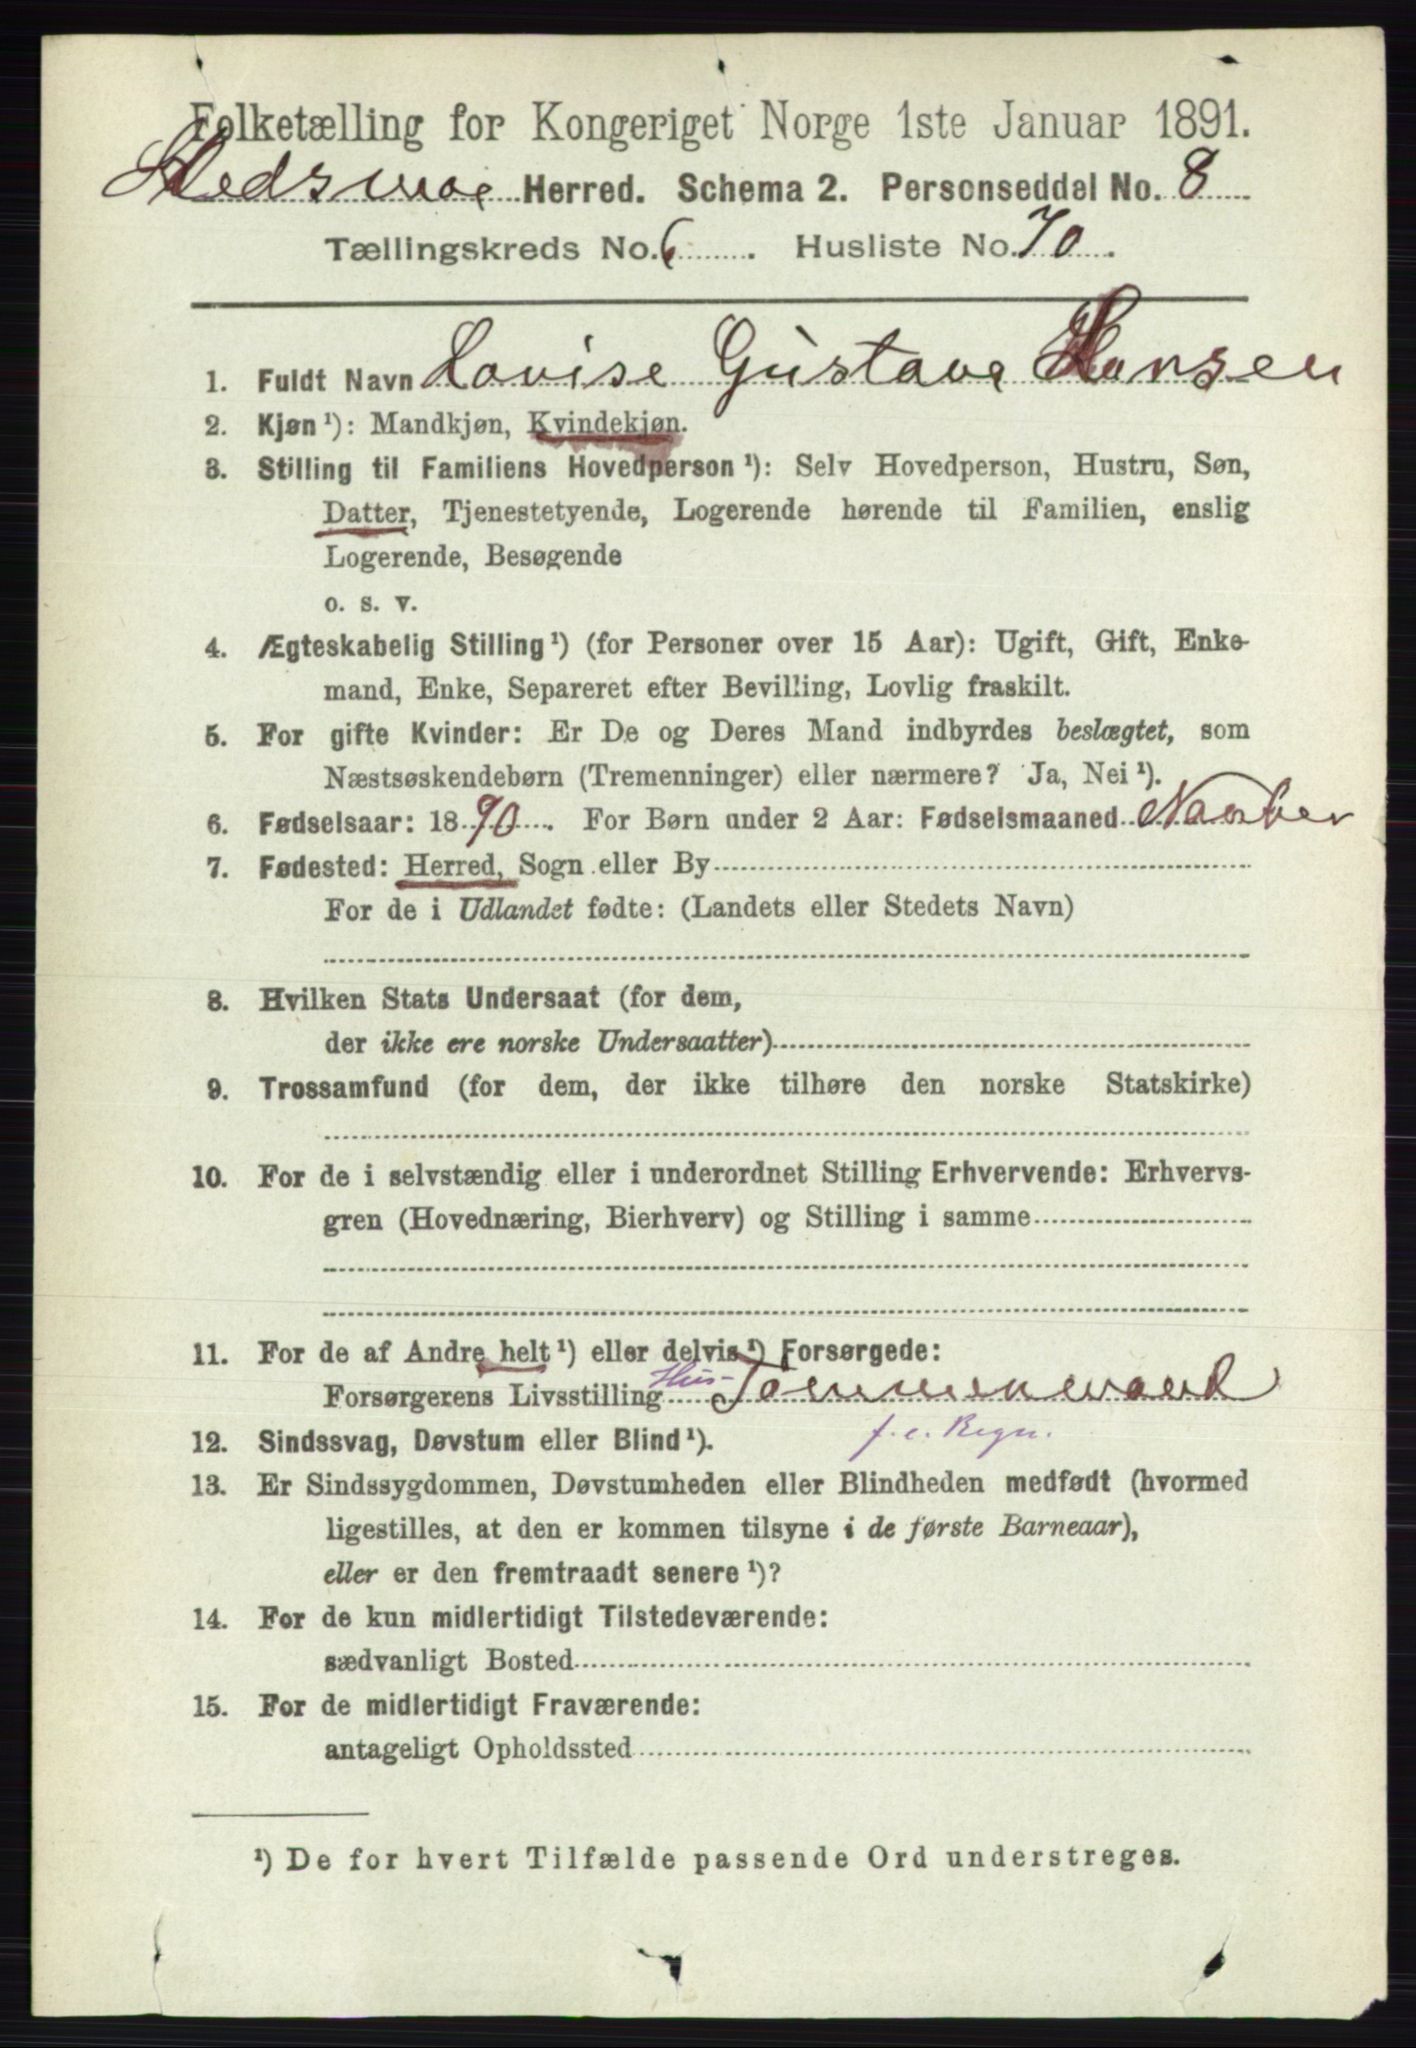 Folketælling for Kongeriget Norge 1ste Januar 1891.
Herred. Schema 2. Personseddel No. 8
Tællingskreds No. 6. Husliste No. 70.
1. Fuldt Navn Lovise Gustava Hansen
2. Kjøn ¹): Mandkjøn, Kvindekjøn.
3. Stilling til Familiens Hovedperson ¹): Selv Hovedperson, Hustru, Søn,
Datter, Tjenestetyende, Logerende hørende til Familien, enslig
Logerende, Besøgende
o. s. v.
4. Ægteskabelig Stilling ¹) (for Personer over 15 Aar): Ugift, Gift, Enke-
mand, Enke, Separeret efter Bevilling, Lovlig fraskilt.
5. For gifte Kvinder: Er De og Deres Mand indbyrdes beslægtet, som
Næstsøskendebørn (Tremenninger) eller nærmere? Ja, Nei ¹).
6. Fødselsaar: 1890. For Børn under 2 Aar: Fødselsmaaned
7. Fødested: Herred, Sogn eller By
For de i Udlandet fødte: (Landets eller Stedets Navn)
8. Hvilken Stats Undersaat (for dem,
der ikke ere norske Undersaatter)
9. Trossamfund (for dem, der ikke tilhøre den norske Statskirke)
10. For de i selvstændig eller i underordnet Stilling Erhvervende: Erhvervs-
gren (Hovednæring, Bierhverv) og Stilling i samme
11. For de af Andre helt ¹) eller delvis ¹) Forsørgede:
Forsørgerens Livsstilling Hus-Tømmermand
f. e. Regn.
12. Sindssvag, Døvstum eller Blind ¹).
13. Er Sindssygdommen, Døvstumheden eller Blindheden medfødt (hvormed
ligestilles, at den er kommen tilsyne i de første Barneaar),
eller er den fremtraadt senere ¹)?
14. For de kun midlertidigt Tilstedeværende:
sædvanligt Bosted
15. For de midlertidigt Fraværende:
antageligt Opholdssted
¹) De for hvert Tilfælde passende Ord understreges.